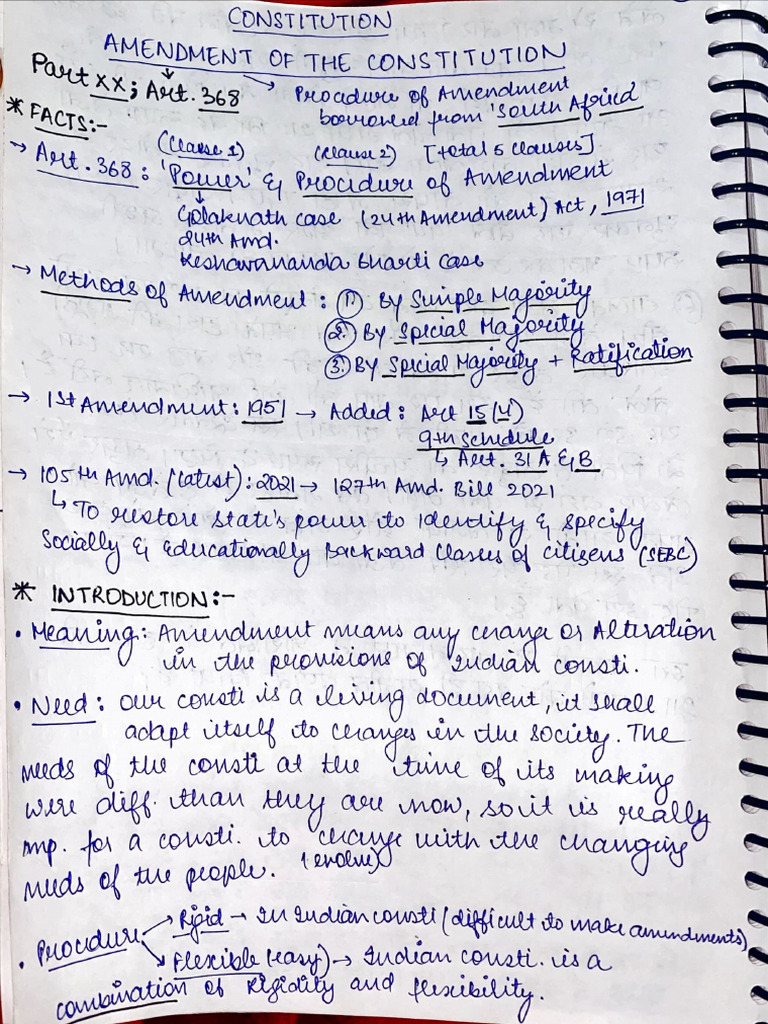 CONSTITUTION
AMENDMENT OF THE CONSTITUTION
Part XX; Art. 368 → Procedure of Amendment
borrowed from 'South Africa'
* FACTS:-
(Clause 1) (Clause 2) [total 5 clauses]
→ Art. 368 : 'Power' & Procidure of Amendment
Golaknath case (24th Amendment) Act, 1971
24th Amd.
Keshavananda Bharti case
→ Methods of Amendment : ① By Simple Majority
② By Special Majority
③ By Special Majority + Ratification
→ 1st Amendment : 1951 → Added : Art 15(4)
9th Schedule
↳ Art. 31 A & B
→ 105th Amd. (latest) : 2021 → 127th Amd. Bill 2021
↳ To restore state's power to Identify & specify
Socially & Educationally Backward classes of citizens (SEBC)
* INTRODUCTION:-
• Meaning : Amendment means any change or Alteration
in the provisions of Indian consti.
• Need : our consti is a living document, it shall
adapt itself to changes in the society. The
needs of the consti at the time of its making
were diff. than they are now, so it is really
imp. for a consti. to change with the changing
(evolve)
needs of the people.
• Procidure → Rigid → In Indian consti (difficult to make amendments)
→ Flexible (easy) → Indian consti. is a
combination of Rigidity and flexibility.